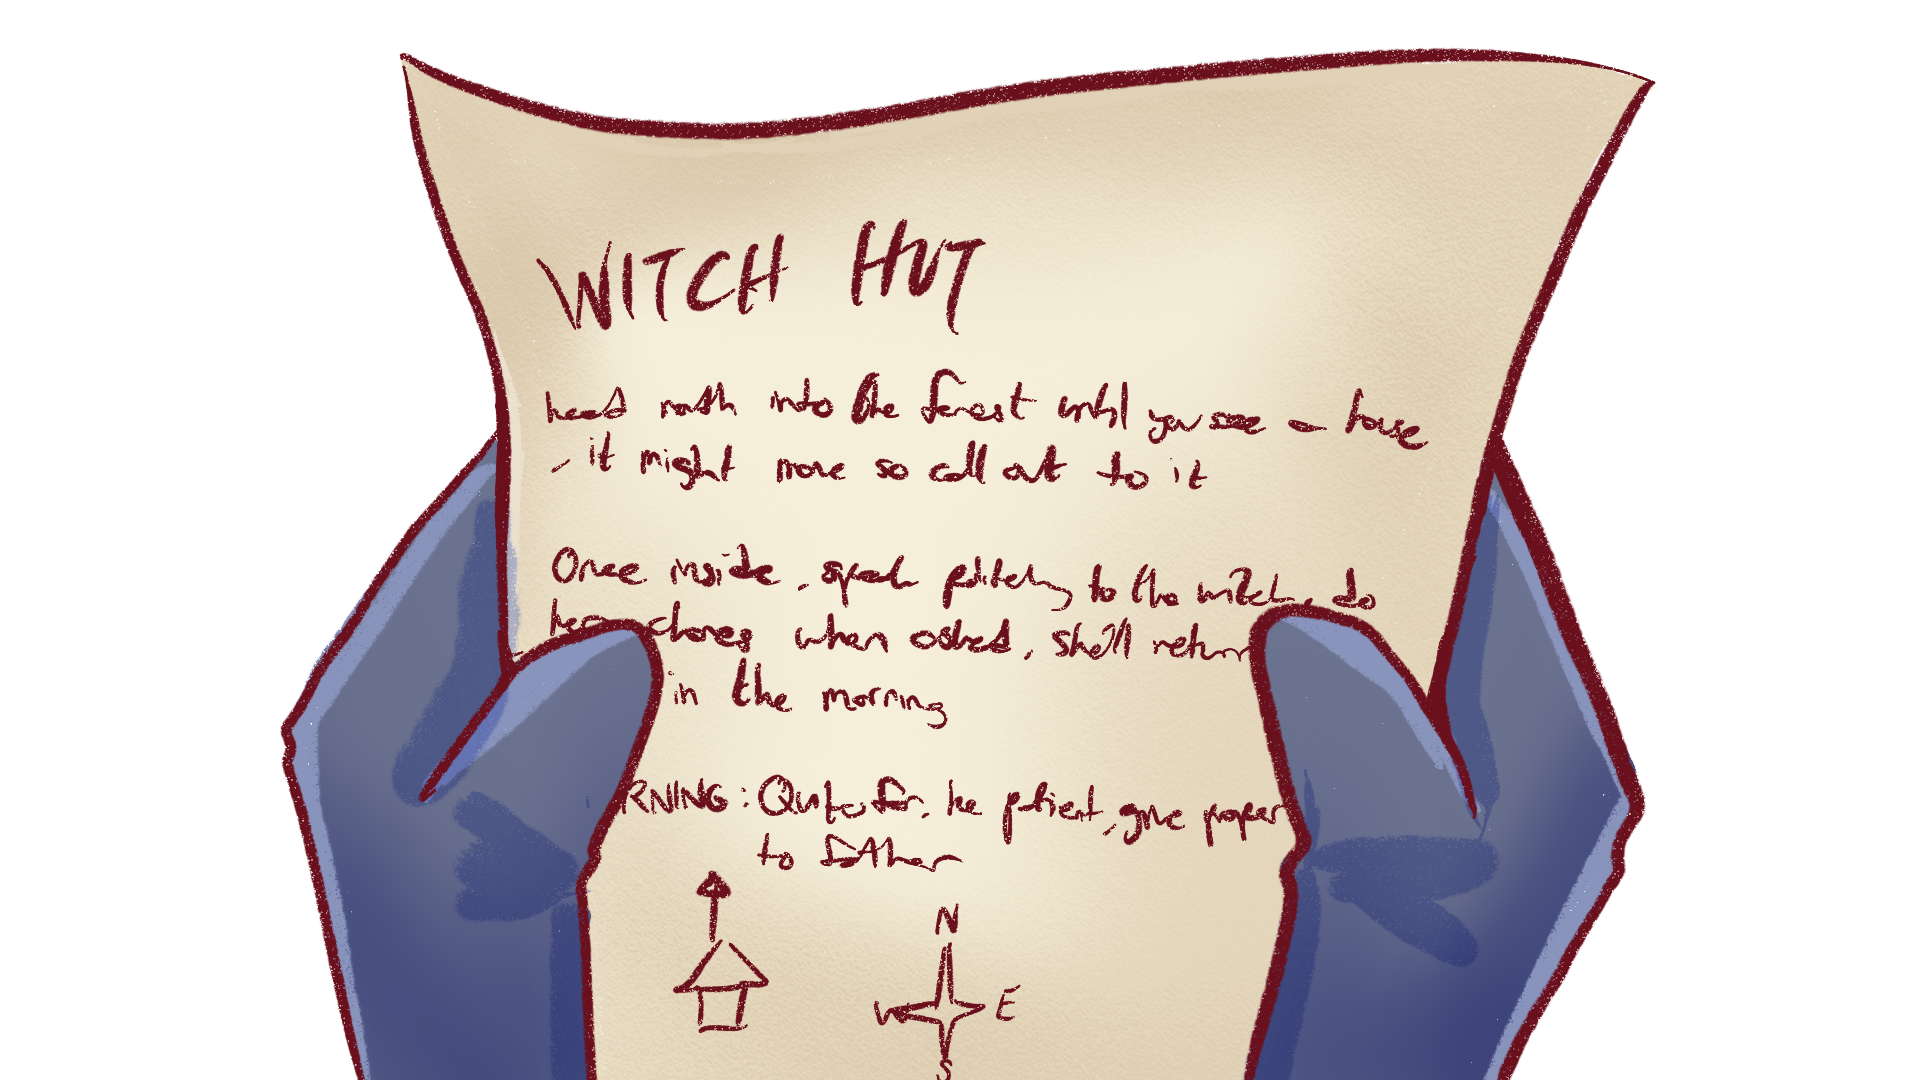 WITCH HUT
head north into the forest until you see a house
, it might move so call out to it
Once inside, speak politely to the witch, do
her chores when asked, she'll return
in the morning
RNING: Quite far, be patient, give paper
to father
N
W E
S